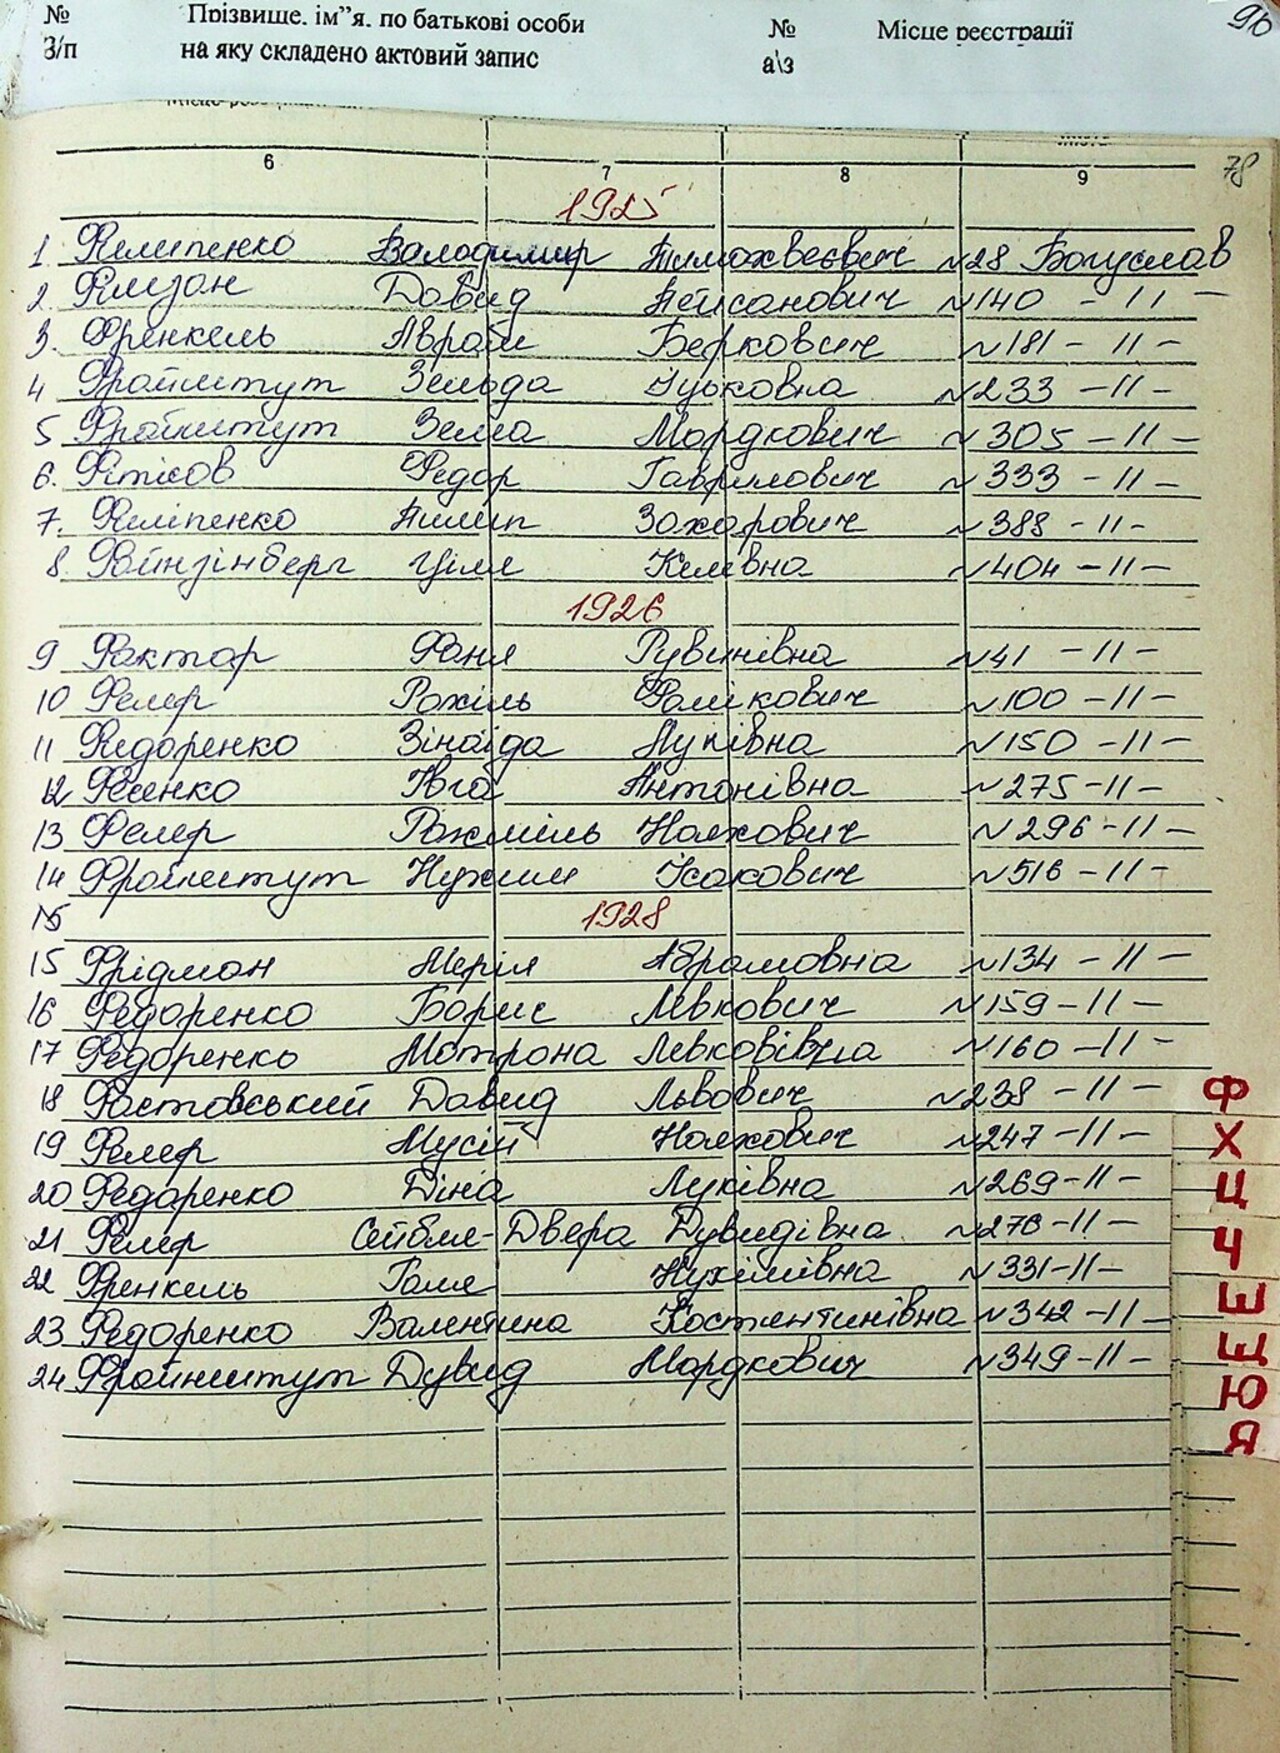 № Прізвище, ім”я, по батькові особи № Місце реєстрації 96
З/п на яку складено актовий запис а\з
6 7 8 9 78
1925
1. Филипенко Володимир №28 Богуслав
2. Фімзан Давид Пейсанович №140 -11-
3. Френкель Абрам Беркович №181 -11-
4 Фройштут Зельда Іцьковна №233 -11-
5 Фройштут Зелма Мордкович №305 -11-
6. Фітісов Федор Гаврилович №333 -11-
7. Филіпенко Пилип Захарович №388 -11-
8. Файнзінберг Ціля Килевна №404 -11-
1926
9 Фактор Фаня Рувинівна №41 -11-
10 Фелер Рахіль Фоликович №100 -11-
11 Федоренко Зінаїда Лупівна №150 -11-
12 Фесенко Ївга Антонівна №275 -11-
13 Фелер Рахміль Нояхович №296 -11-
14 Фройштут Нухим Ісакович №516 -11-
15 1928
15 Фрідман Мерія Абрамовна №134 -11-
16 Федоренко Борис Левкович №159 -11-
17 Федоренко Мотрона Левковівна №160 -11-
18 Фастовський Давид Львович №238 -11-
19 Фелер Мусій Нояхович №247 -11-
20 Федоренко Діна Луківна №269 -11-
21 Фелер Сейбля-Двера Дувидівна №276 -11-
22 Френкель Галя Нухимівна №331 -11-
23 Федоренко Валентина Костянтинівна №342 -11-
24 Фройнштут Дувид Мордкович №349 -11-
Ф
Х
Ц
Ч
Ш
Щ
Ю
Я